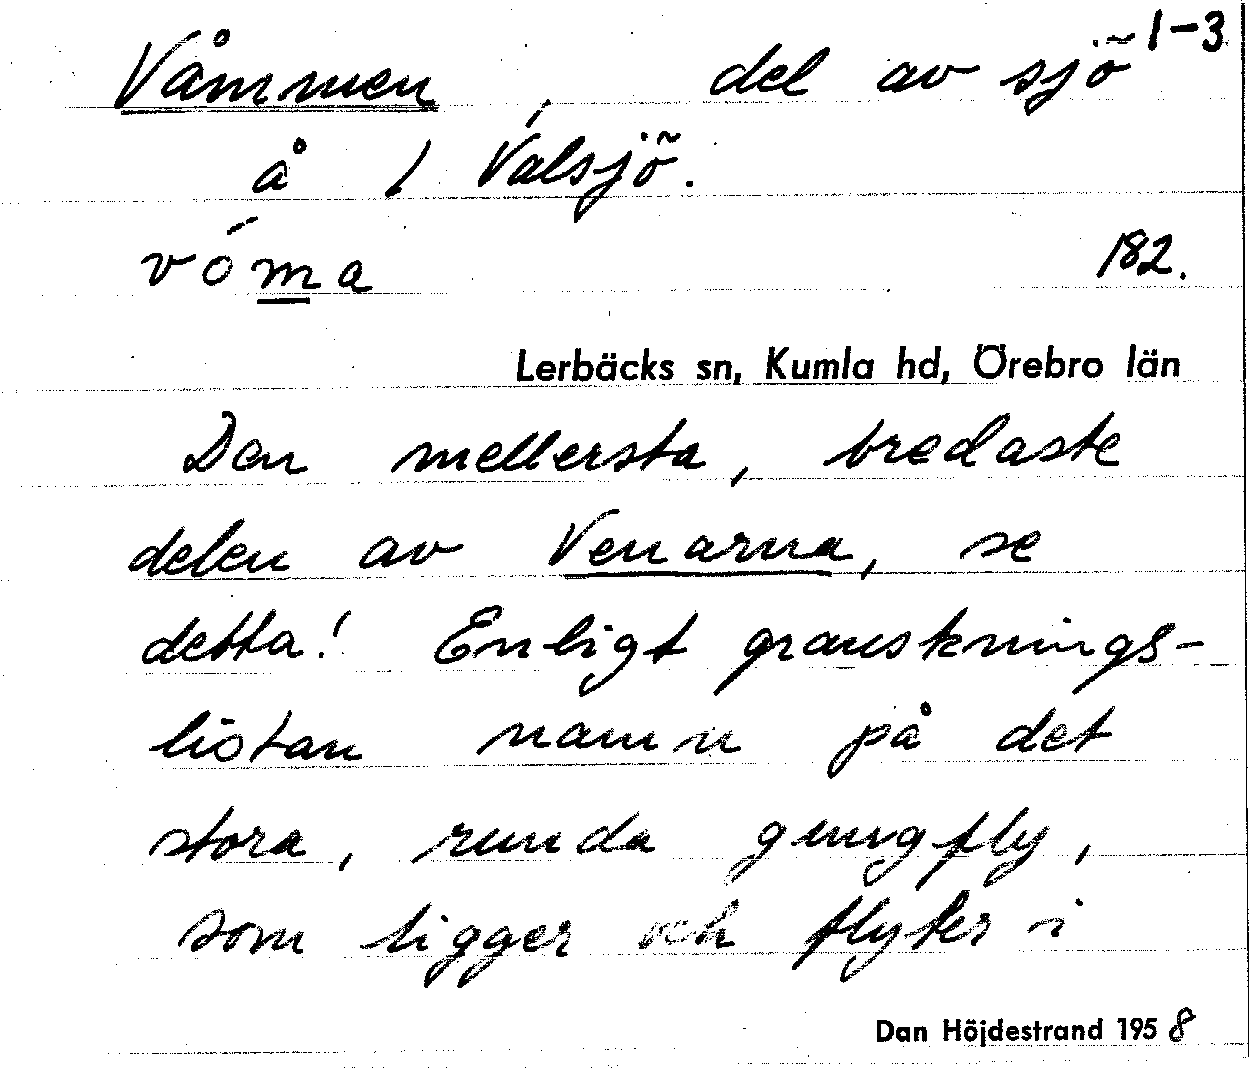 1-3
Våmmen, del av sjö
å 1 Valsjö.
vóma
182.
Lerbäcks sn, Kumla hd, Örebro län
Den mellersta, bredaste
delen av Venarna, se
detta! Enligt gransknings-
listan namn på det
stora, runda gungfly,
som ligger och flyter i
Dan Höjdestrand 1958